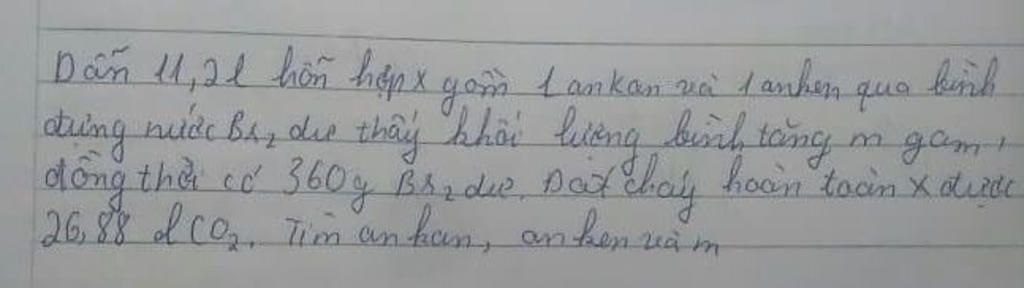 Dẫn 11,2l hỗn hợp x gồm 1 ankan và 1 anken qua bình
đựng nước Br2 dư thấy khối lượng bình tăng m gam,
đồng thời có 360g Br2 dư. Đốt cháy hoàn toàn X được
26,88 l CO2. Tìm ankan, anken và m